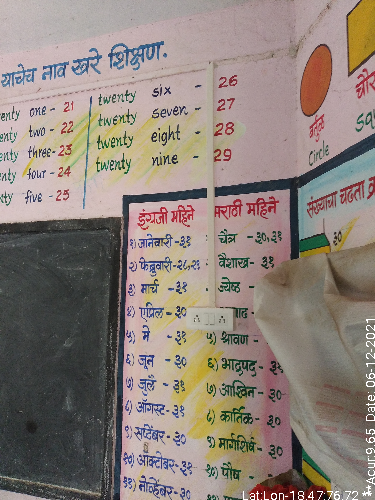 याचेच नाव खरे शिक्षण.
one - 21
two - 22
three - 23
four - 24
five - 25
twenty six - 26
twenty seven - 27
twenty eight - 28
twenty nine - 29
वर्तुळ
Circle
संख्याचा चढता
इंग्रजी महिने
१) जानेवारी - ३१
२) फेब्रुवारी - २८, २९
३) मार्च - ३१
४) एप्रिल - ३०
५) मे - ३१
६) जून - ३०
७) जुलै - ३१
८) ऑगस्ट - ३१
९) सप्टेंबर - ३०
१०) ऑक्टोबर - ३१
११) नोव्हेंबर - ३०
मराठी महिने
चैत्र - ३०, ३१
वैशाख - ३१
ज्येष्ठ
५) श्रावण -
६) भाद्रपद - ३१
७) आश्विन -
८) कार्तिक -
९) मार्गशीर्ष - ३०
१०) पौष -
Lat,Lon-18.47,76.72
**Acur:9.65 Date:06-12-2021